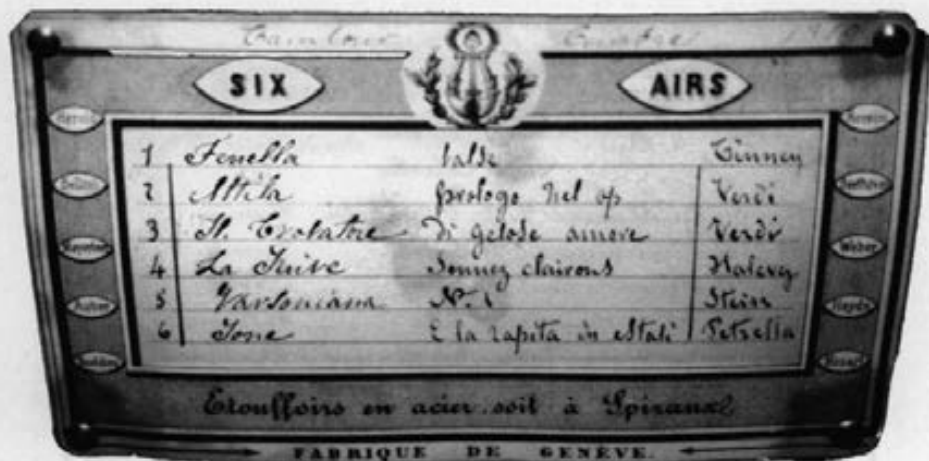 Tambour Timbres
SIX AIRS
1 Fenella Valse Tinney
2 Attila prologo nel op Verdi
3 Il Trovatore Di gelose amore Verdi
4 La Juive Sonnez clairons Halevy
5 Varsoviana N. 1 Stein
6 Ione E la rapita in estasi Petrella
Weber
Haydn
Etouffoirs en acier soit à Spiraux
FABRIQUE DE GENÈVE.